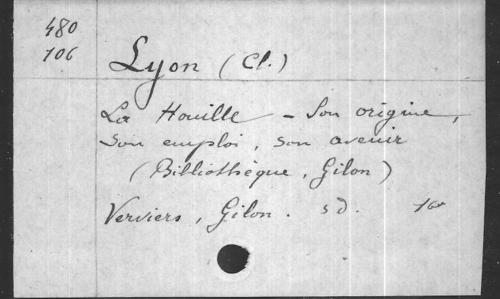 480
106
Lyon (Cl.)
La Houille - Son origine,
son emploi, son avenir
(Bibliothèque, Gilon)
Verviers, Gilon. sd. 16º